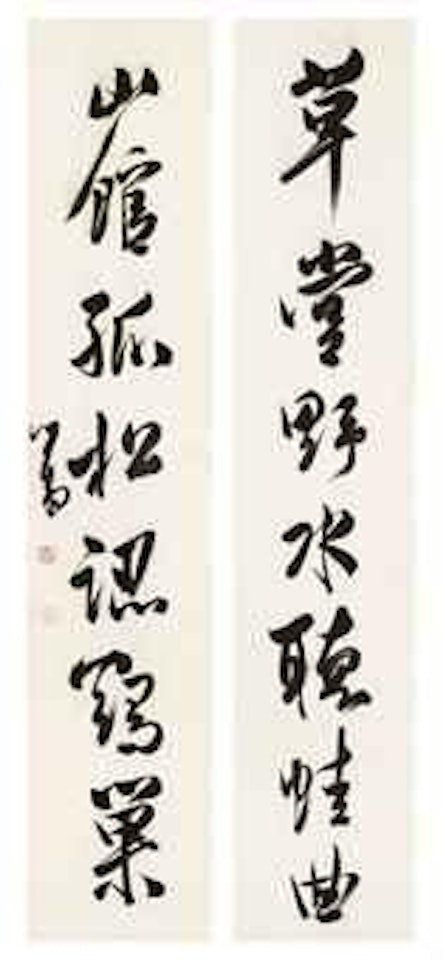 草堂野水聽蛙曲
山館孤松認鶴巢